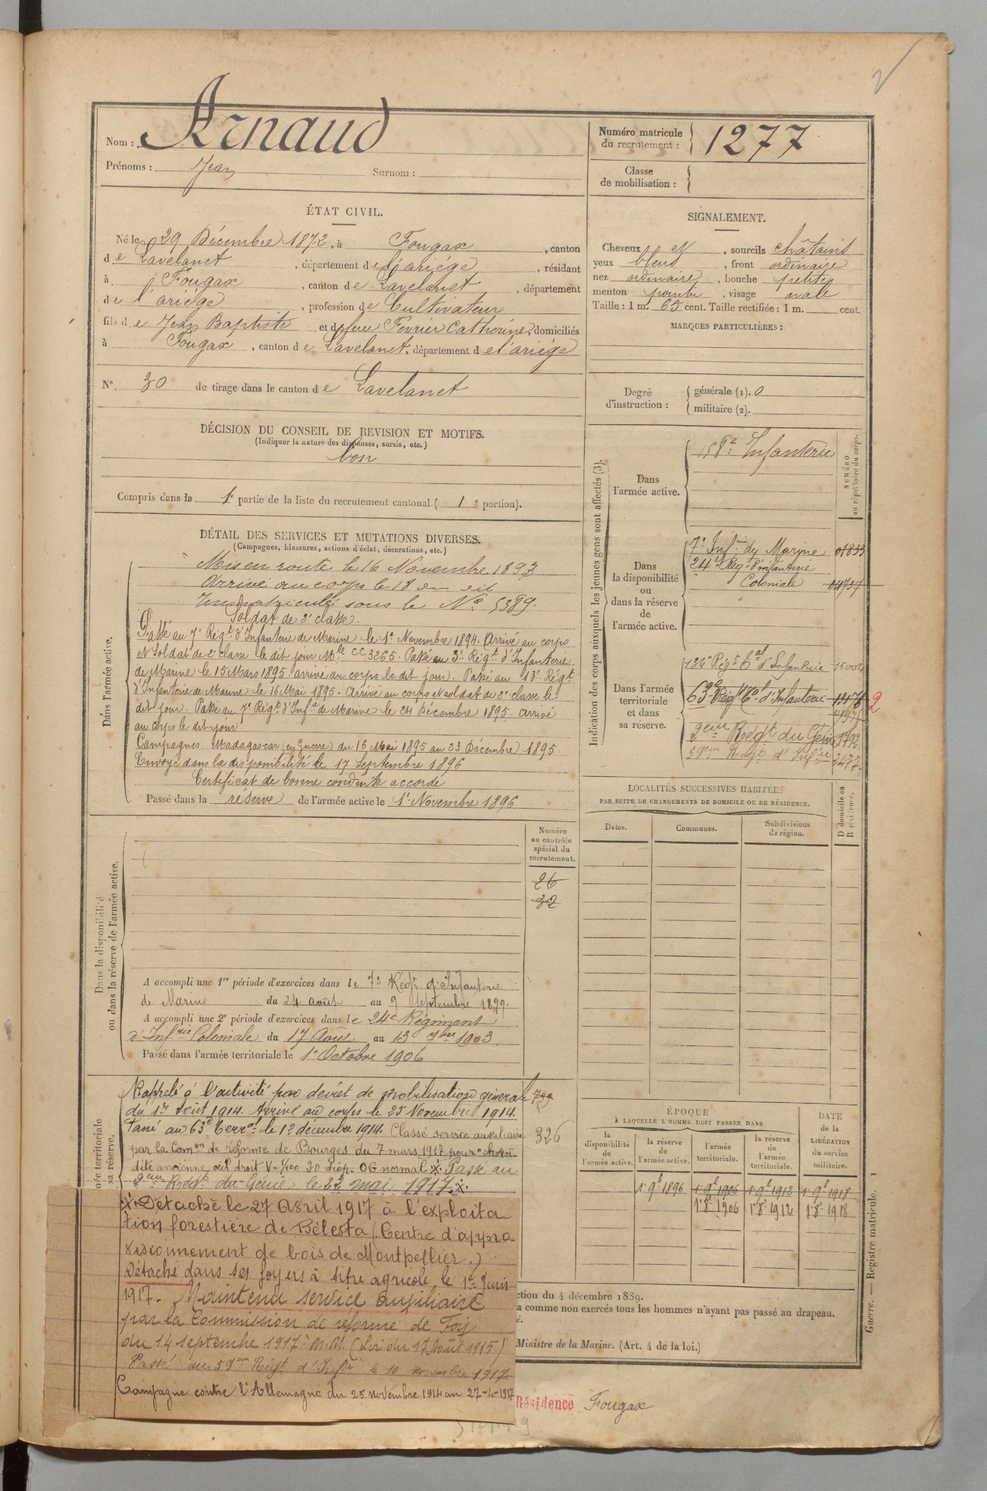 Nom : Arnaud
Prénoms : Jean Surnom :
Numéro matricule du recrutement : 1277
Classe de mobilisation :
ÉTAT CIVIL.
Né le 29 Décembre 1872, à Fougax, canton
de Lavelanet, département de l'ariége, résidant
à Fougax, canton de Lavelanet, département
de l'ariége, profession de Cultivateur
fils de Jean Baptiste et de feue Fevrier Catherine, domiciliés
à Fougax, canton de Lavelanet, département de l'ariége
N° 30 de tirage dans le canton de Lavelanet
SIGNALEMENT.
Cheveux et, sourcils châtains
yeux bleus, front ordinaire
nez ordinaire, bouche petite
menton pointu, visage ovale
Taille : 1 m. 65 cent. Taille rectifiée : 1 m. cent.
MARQUES PARTICULIÈRES :
Degré d'instruction : générale (1). 0
militaire (2).
DÉCISION DU CONSEIL DE REVISION ET MOTIFS.
(Indiquer la nature des dispenses, sursis, etc.)
bon
Compris dans la 1e partie de la liste du recrutement cantonal (1e portion).
DÉTAIL DES SERVICES ET MUTATIONS DIVERSES.
(Campagnes, blessures, actions d'éclat, décorations, etc.)
Dans l'armée active.
Mis en route le 16 Novembre 1893
Arrivé au corps le 18 en dit
Immatriculé sous le No 5389.
Soldat de 2e classe.
Passé au 7e Régt d'Infanterie de Marine le 1er Novembre 1894. Arrivé au corps
et Soldat de 2e classe le dit jour Mle CC 3265. Passé au 3e Régt d'Infanterie
de Marine le 15 Mars 1895. arrivé au corps le dit jour. Passé au 13e Régt
d'Infanterie de Marine le 16 Mai 1895. Arrivé au corps & soldat de 2e classe le
dit jour. Passé au 7e Régt d'Infie de Marine le 24 décembre 1895. arrivé
au corps le dit jour.
Campagnes Madagascar (en Guerre) du 16 Mai 1895 au 23 Décembre 1895
Envoyé dans la disponibilité le 17 Septembre 1896
Certificat de bonne conduite accordé
Passé dans la réserve de l'armée active le 1er Novembre 1896
Indication des corps auxquels les jeunes gens sont affectés (3).
NUMÉRO au répertoire du corps.
Dans l'armée active.
158e Infanterie
Dans la disponibilité ou dans la réserve de l'armée active.
7e Infie de Marine
24e Régt d'Infanterie
Coloniale
Dans l'armée territoriale et dans sa réserve.
126e Régt Cal d'Infanterie
63e Régt Cal d'Infanterie
2eme Régt du Génie
59eme Régt d'Infie
2
LOCALITÉS SUCCESSIVES HABITÉES
PAR SUITE DE CHANGEMENTS DE DOMICILE OU DE RÉSIDENCE.
Dates. Communes. Subdivisions de région. D domicile ou R résidence.
Dans la disponibilité ou dans la réserve de l'armée active.
Numéro au contrôle spécial du recrutement.
26
32
A accompli une 1re période d'exercices dans le 7e Régt d'Infanterie
de Marine du 24 août au 9 Septembre 1899.
A accompli une 2e période d'exercices dans le 24e Régiment
d'Infrie Coloniale du 17 Août au 13 7bre 1903.
Passé dans l'armée territoriale le 1er Octobre 1906
Rappelé à l'activité par décret de mobilisation général
du 1er Août 1914. Arrivé au corps le 25 Novembre 1914.
Passé au 63e Terral le 12 décembre 1914. Classé service auxiliaire
par la Comon de réforme de Bourges du 7 mars 1917 pour choroï
dite ancienne, œil droit V = 1/100 30 diop. OG normal. X. Passé au
2eme Régt du Génie le 22 mai 1917. X.
326
X. Détaché le 27 Avril 1917 à l'exploita
tion forestière de Bélesta (Centre d'appro
visionnement de bois de Montpellier.)
Détaché dans ses foyers à titre agricole, le 1er Juin
1917. Maintenu service auxiliaire
par la Commission de réforme de Foix
du 14 septembre 1917 (Loi du 17 Août 1915)
Passé au 59eme Régt d'Infie le 10 novembre 1917
Campagne contre l'Allemagne du 25 novembre 1914 au 27-4-1917
ÉPOQUE
À LAQUELLE L'HOMME DOIT PASSER DANS
la disponibilité de l'armée active. la réserve de l'armée active. l'armée territoriale. la réserve de l'armée territoriale.
DATE de la LIBÉRATION du service militaire.
1er 9e 1896 1er 9e 1906 1er 9e 1912 1er 9e 1918
1er 8e 1906 1er 8e 1912 1er 8e 1918
ction du 4 décembre 1889.
a comme non exercés tous les hommes n'ayant pas passé au drapeau.
Ministre de la Marine. (Art. 4 de la loi.)
Guerre. — Registre matricule. 1
Résidence Fougax